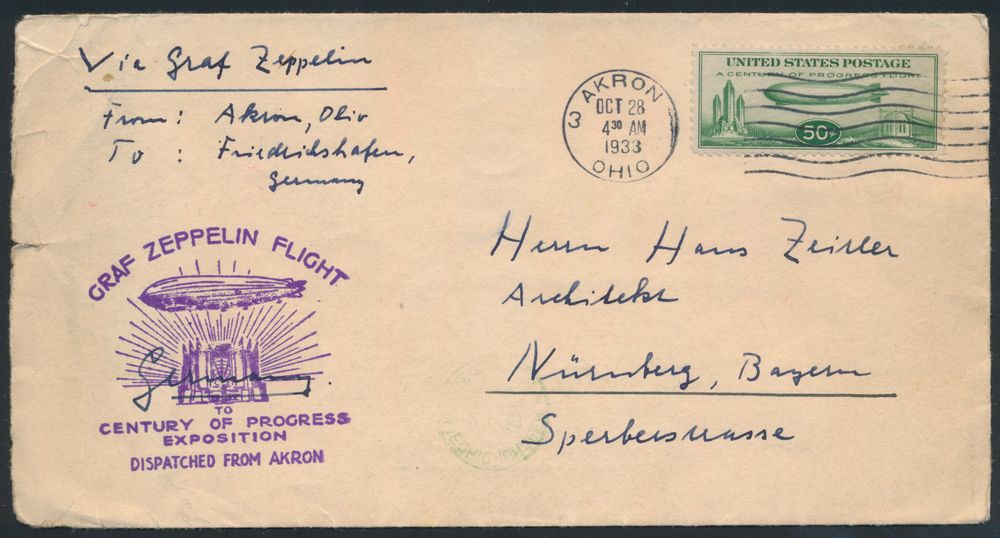 Via Graf Zeppelin
From: Akron, Ohio
To : Friedrichshafen,
Germany
AKRON
OCT 28
4 30 AM
1933
OHIO
3
UNITED STATES POSTAGE
A CENTURY OF PROGRESS FLIGHT
50¢
GRAF ZEPPELIN FLIGHT
Germany.
TO
CENTURY OF PROGRESS
EXPOSITION
DISPATCHED FROM AKRON
Herrn Hans Zeisler
Architekt
Nürnberg, Bayern
Sperberstrasse